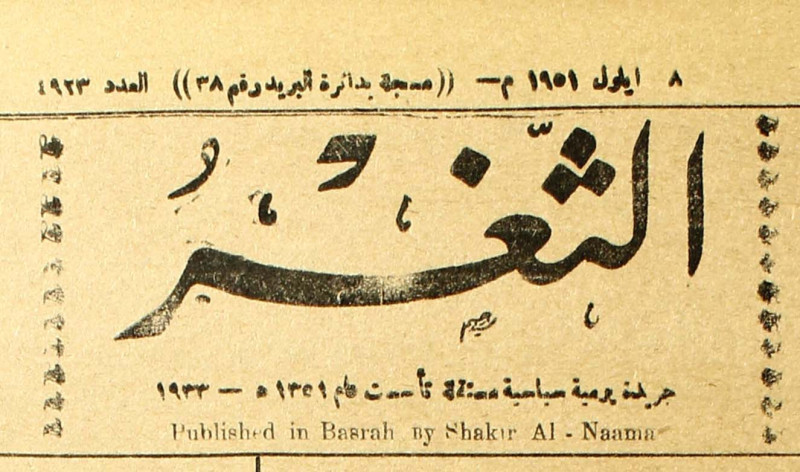 ٨ ايلول ١٩٥١ م— ((مسجلة بدائرة البريد رقم ٣٨)) العدد ٤٩٢٣
الثَّغْرُ
جريدة يومية سياسية مستقلة تأسست عام ١٣٥١ ه — ١٩٣٣
Published in Basrah By Shakir Al - Naama